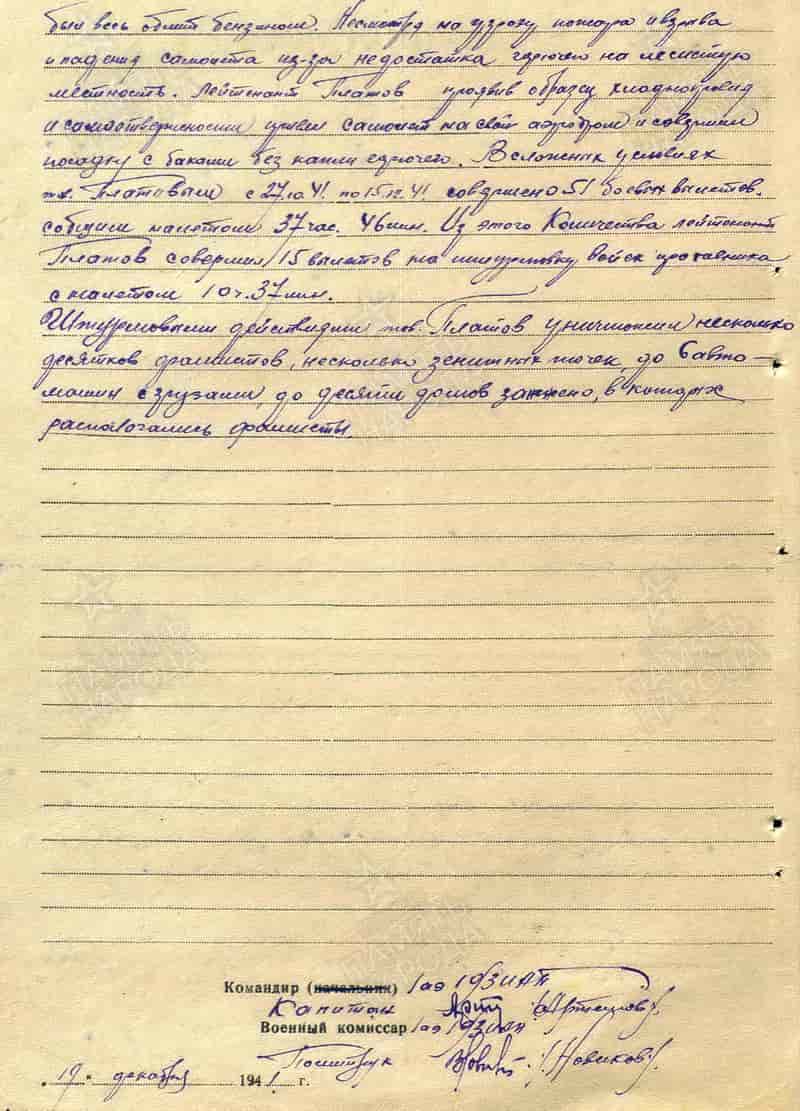 был весь облит бензином. Несмотря на угрозу пожара и взрыва
и падения самолета из-за недостатка горючего на лесистую
местность. Лейтенант Платов проявив образец хладнокровия
и самоотверженности привел самолет на свой аэродром и совершил
посадку с баками без капли горючего. В сложных условиях
тов. Платовым с 27.10.41 по 15.12.41 совершено 51 боевых вылетов.
с общим налетом 37 час. 46 мин. Из этого Количества лейтенант
Платов совершил 15 вылетов на штурмовку войск противника
с налетом 10 ч. 37 мин.
Штурмовыми действиями тов. Платов уничтожил несколько
десятков фашистов, несколько зенитных точек, до 6 авто-
машин с грузами, до десяти домов зажжено, в которых
располагались фашисты.
Командир (начальник) 1 аэ 193 ИАП
Капитан
Военный комиссар 1 аэ 193 ИАП
Политрук /Новиков/.
"19" декабря 1941 г.
ПАМЯТЬ
НАРОДА